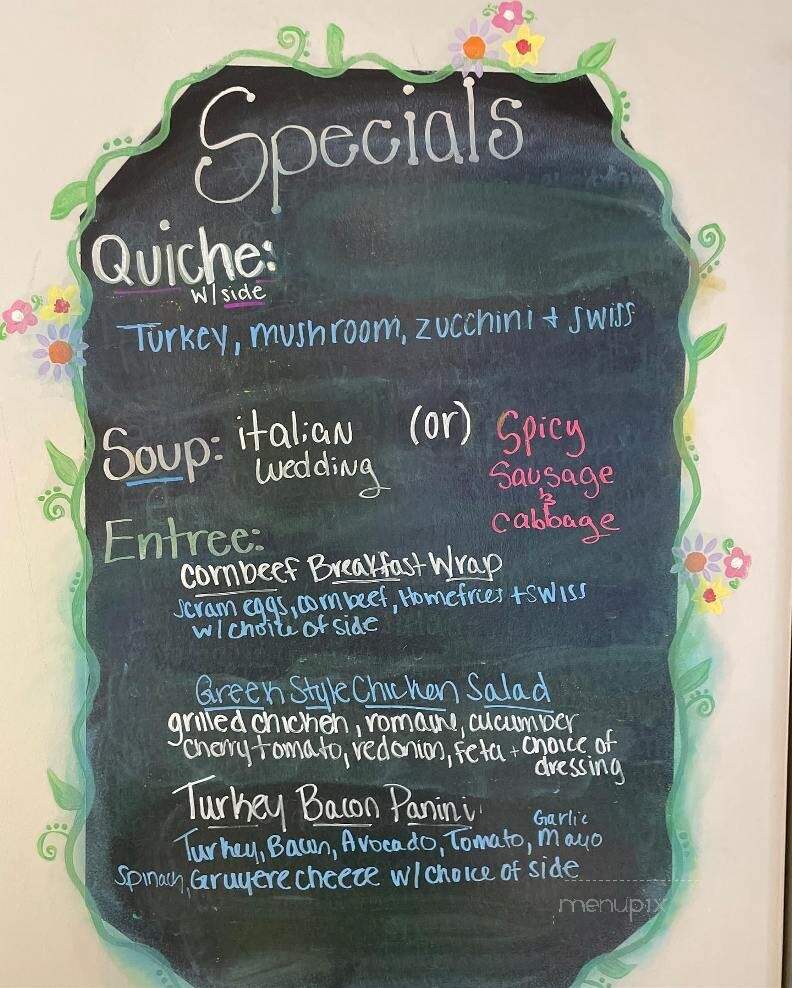 Specials
Quiche:
w/ side
Turkey, mushroom, zucchini + swiss
Soup: italian (or) Spicy
wedding Sausage
&
cabbage
Entree:
cornbeef Breakfast Wrap
scram eggs, cornbeef, Homefries + swiss
w/ choice of side
Green Style Chicken Salad
grilled chicken, romaine, cucumber
cherry tomato, red onion, feta + choice of
dressing
Turkey Bacon Panini
Garlic
Turkey, Bacon, Avocado, Tomato, Mayo
Spinach, Gruyere cheeze w/ choice of side
menupix